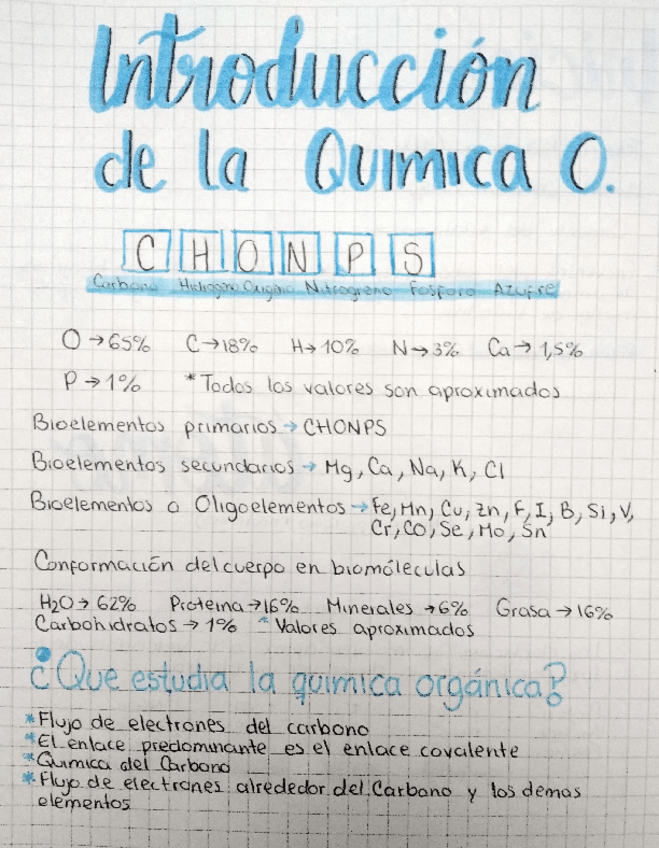 Introducción
de la Quimica O.
C H O N P S
Carbono Hidrogeno Oxigeno Nitrogreno Fosforo Azufre
O → 65% C → 18% H → 10% N → 3% Ca → 1,5%
P → 1% *Todos los valores son aproximados
Bioelementos primarios → CHONPS
Bioelementos secundarios → Mg, Ca, Na, K, Cl
Bioelementos o Oligoelementos → Fe, Mn, Cu, Zn, F, I, B, Si, V,
Cr, CO, Se, Mo, Sn
Conformación del cuerpo en biomóleculas
H2O → 62% Proteina → 16% Minerales → 6% Grasa → 16%
Carbohidratos → 1% *Valores aproximados
¿Que estudia la quimica orgánica?
*Flujo de electrones del carbono
*El enlace predominante es el enlace covalente
*Quimica del Carbono
*Flujo de electrones alrededor del Carbono y los demas
elementos